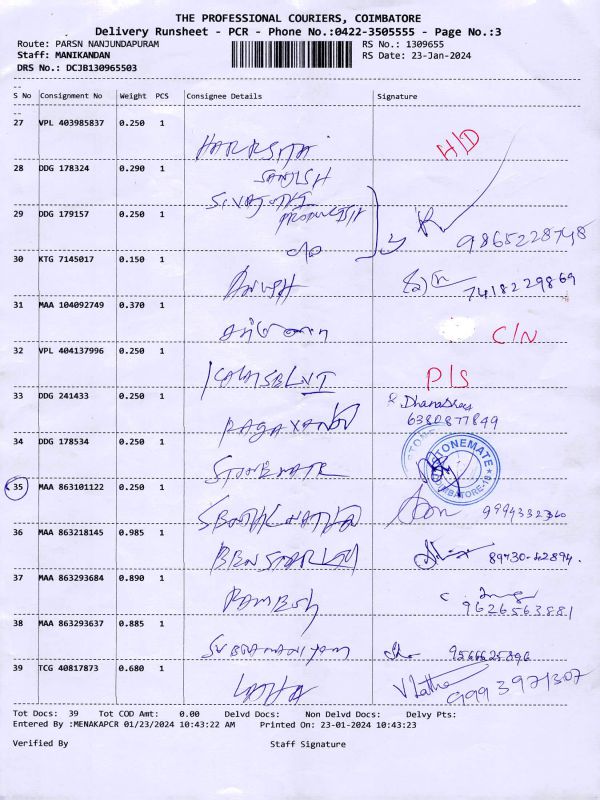 THE PROFESSIONAL COURIERS, COIMBATORE
Delivery Runsheet - PCR - Phone No.:0422-3505555 - Page No.:3
Route: PARSN NANJUNDAPURAM RS No.: 1309655
Staff: MANIKANDAN RS Date: 23-Jan-2024
DRS No.: DCJB130965503
S No Consignment No Weight PCS Consignee Details Signature
27 VPL 403985837 0.250 1
H/D
28 DDG 178324 0.290 1
29 DDG 179157 0.250 1
9865228748
30 KTG 7145017 0.150 1
7418229869
31 MAA 104092749 0.370 1
C/N
32 VPL 404137996 0.250 1
P/S
33 DDG 241433 0.250 1
6380877849
34 DDG 178534 0.250 1
STONEMATE
COIMBATORE-18
35 MAA 863101122 0.250 1
9994332360
36 MAA 863218145 0.985 1
89730-42894.
37 MAA 863293684 0.890 1
RAMESH
9626563881
38 MAA 863293637 0.885 1
9566625896
39 TCG 40817873 0.680 1
LATHA V Latha 9993971307
Tot Docs: 39 Tot COD Amt: 0.00 Delvd Docs: Non Delvd Docs: Delvy Pts:
Entered By :MENAKAPCR 01/23/2024 10:43:22 AM Printed On: 23-01-2024 10:43:23
Verified By Staff Signature